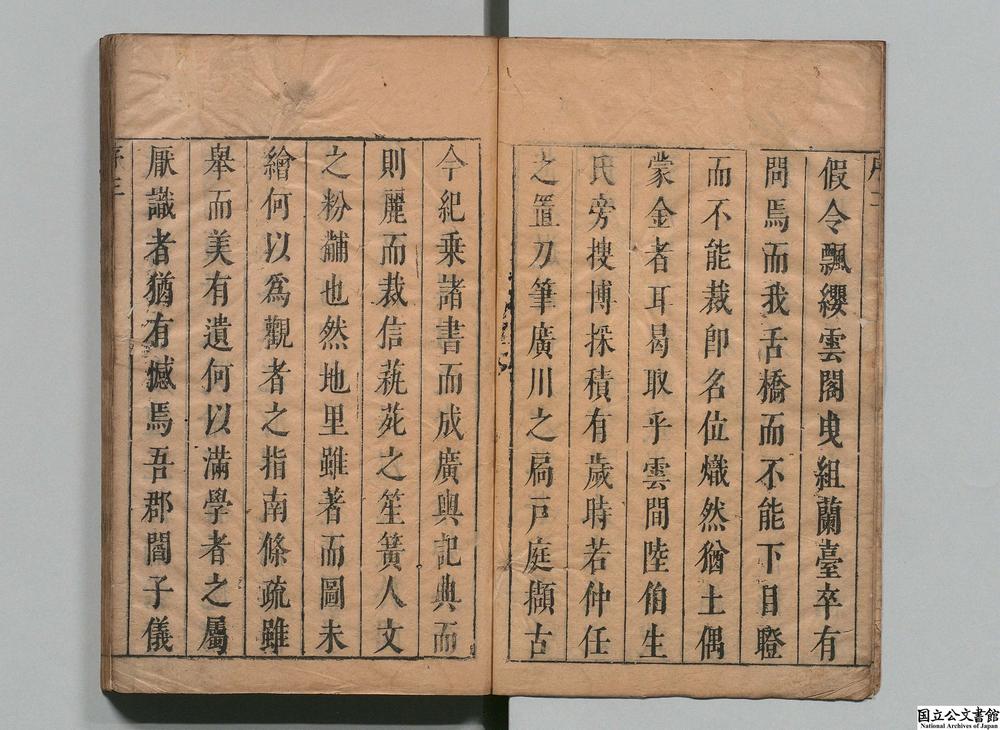 假令飄纓雲閣曳組蘭臺卒有
問焉而我舌橋而不能下目瞪
而不能裁卽名位熾然猶土偶
蒙金者耳曷取乎雲間陸伯生
氏旁搜博採積有歲時若仲任
之置刀筆廣川之扃戸庭擷古
今紀乗諸書而成廣輿記典而
則麗而裁信蓺苑之笙簧人文
之粉黼也然地里雖著而圖未
繪何以爲觀者之指南條疏雖
舉而美有遺何以滿學者之屬
厭識者猶有憾焉吾郡閻子儀
序三
国立公文書館
National Archives of Japan